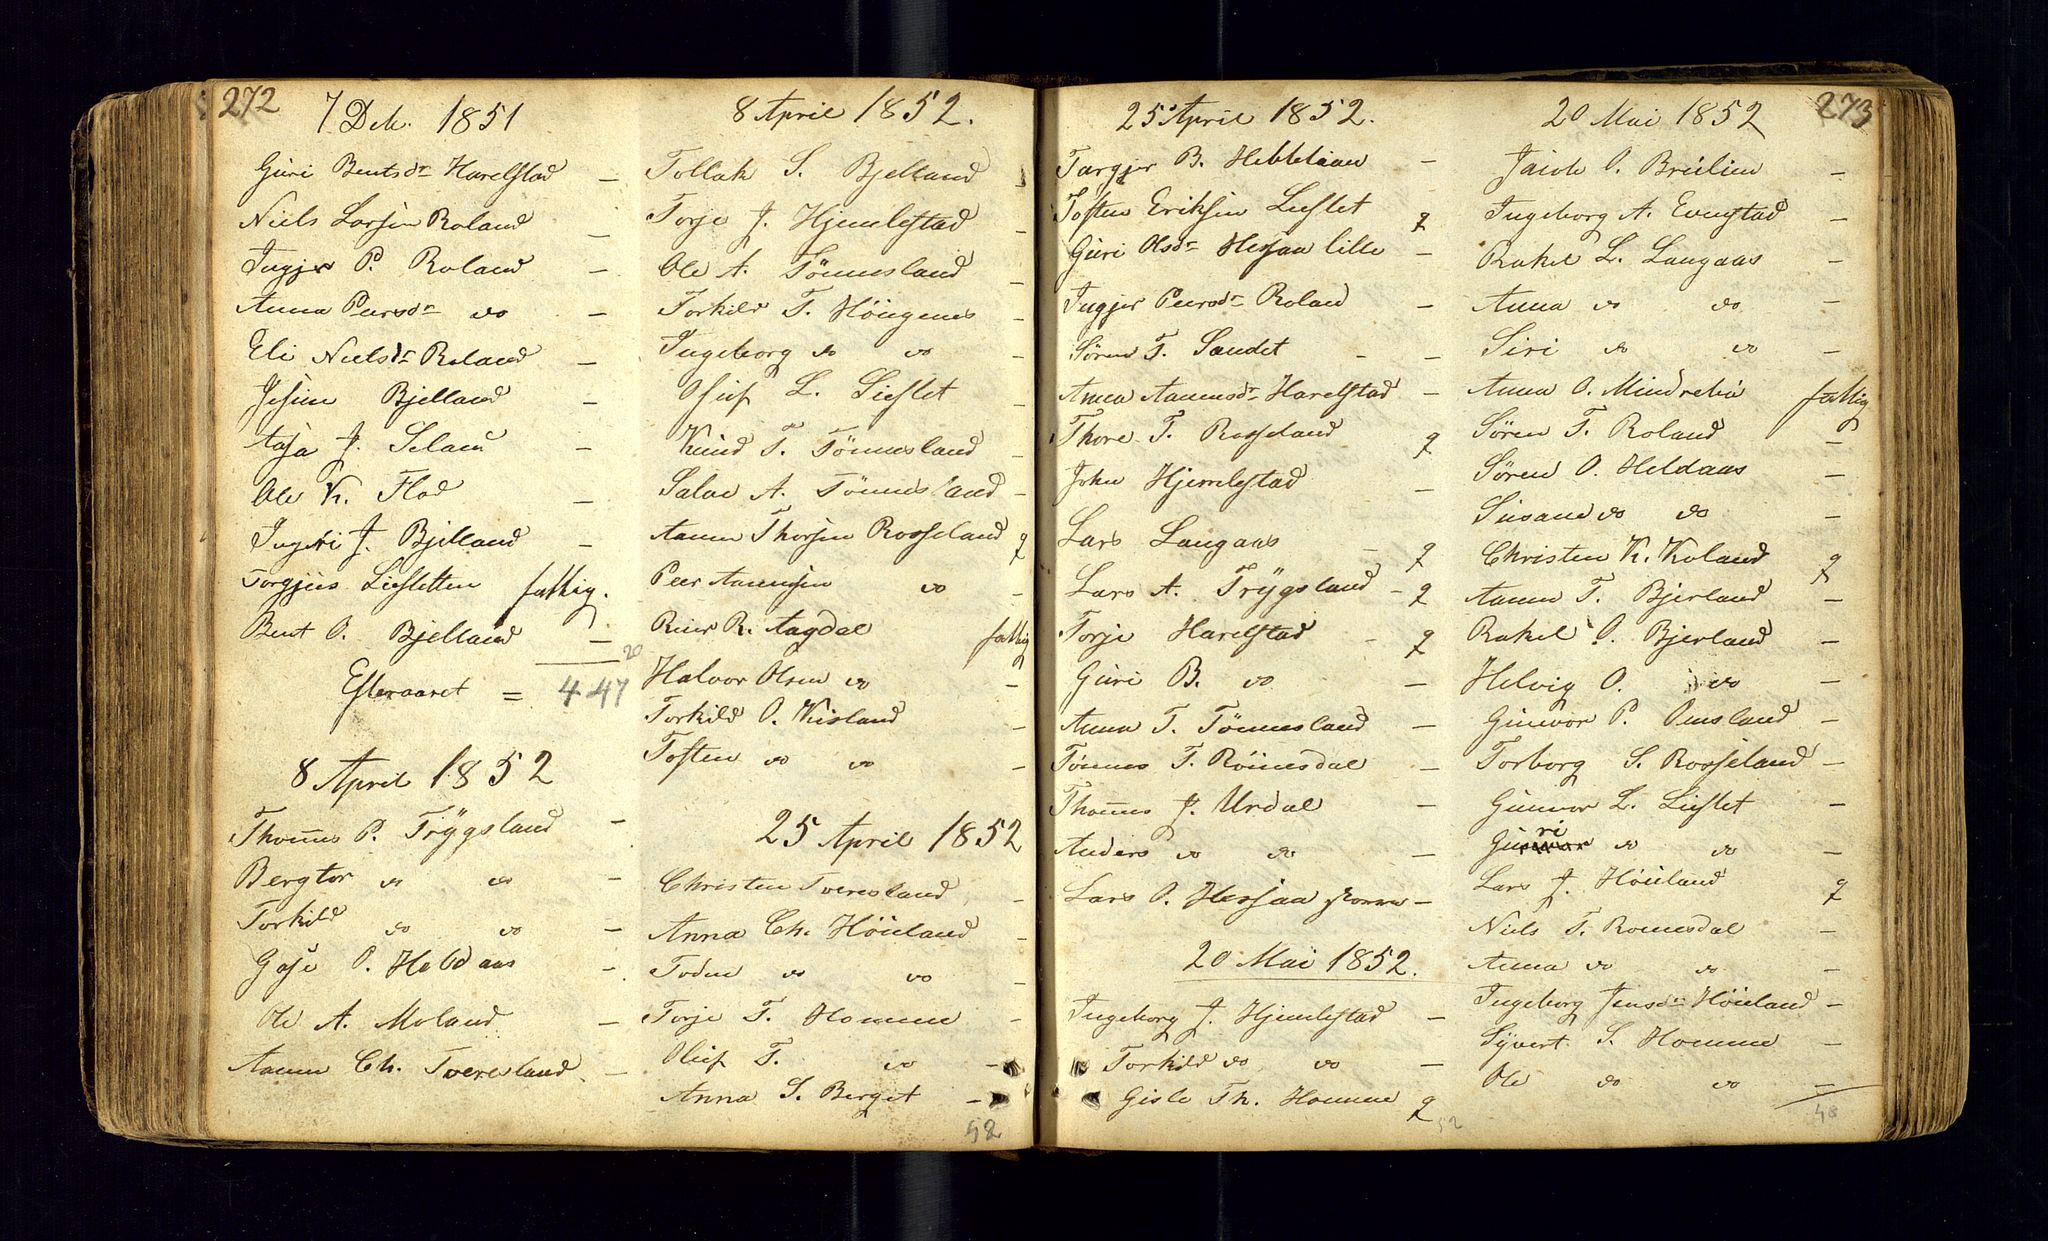 272
7 Dek. 1851
Guri Bentsdr Harelstad –
Niels Larsen Roland –
Ingjer P. Roland –
Anna Peersdr do –
Eli Nielsdr Roland –
Jesine Bjelland –
Aasa J. Seland –
Ole K. Flod –
Ingeri J. Bjelland –
Torgjus Liesletten fattig.
Bent O. Bjelland –
20
Efteraaret = 447
8 April 1852
Thomes P. Trÿgsland –
Bergtor do do –
Torkild do do –
Gose O. Heldaas –
Ole A. Moland –
Aanen Ch. Tveresland –
8 April 1852.
Tollak S. Bjelland
Torje J. Hjemlestad –
Ole A. Tönnesland –
Torkild T. Höugenes –
Ingeborg do do –
Oluf L. Lieslet –
Knud T. Tönnesland –
Salve A. Tönnesland –
Aanen Thorsen Rosseland q
Peer Aanensen do –
Reier R. Aagdal fattig
Halvor Olsen do –
Torkild O. Kisland –
Tosten do do –
25 April 1852
Christen Tveresland –
Anna Ch. Höieland –
Toden do do –
Torje T. Homme –
Oluf T. do –
Anna S. Berget –
52
25 April 1852.
Targjer B. –
Tosten Eriksen Lieslet q
Guri Olsdr Hesjaa lille –
Ingjer Peersdr Roland –
Sören T. Sandet – –
Anna Aanensdr Harelstad –
Thore T. Rosseland q
John Hjemlestad –
Lars Langaas – q
Lars A. Trÿgsland – q
Torje Harelstad – q
Guri B. do –
Anna T. Tönnesland –
Tönnes T. Röinesdal –
Thomes J. Urdal –
Anders do do –
Lars O. Hesjaa –
20 Mai 1852.
Ingeborg J. Hjemlestad –
Torkild do do –
Gisle Th. Homme q
52
20 Mai 1852
273
Jacob O. Breilien –
Ingeborg A. Evenstad –
Rakel L. Langaas –
Anna do do –
Siri do do –
Anna O. Mindrebö fattig
Sören T. Roland –
Sören O. Heldaas –
Susane do do –
Christen K. Roland q
Aanen T. Bjerland –
Rakel O. Bjerland –
Helvig O. do –
Gunvor P. Omsland –
Torborg S. Rosseland –
Gunvor L. Lieslet –
Guri do do –
Lars J. Höieland q
Niels T. Romesdal –
Anna do do –
Ingeborg Jensdr Höieland –
Syvert S. Homme –
Ole do do –
48